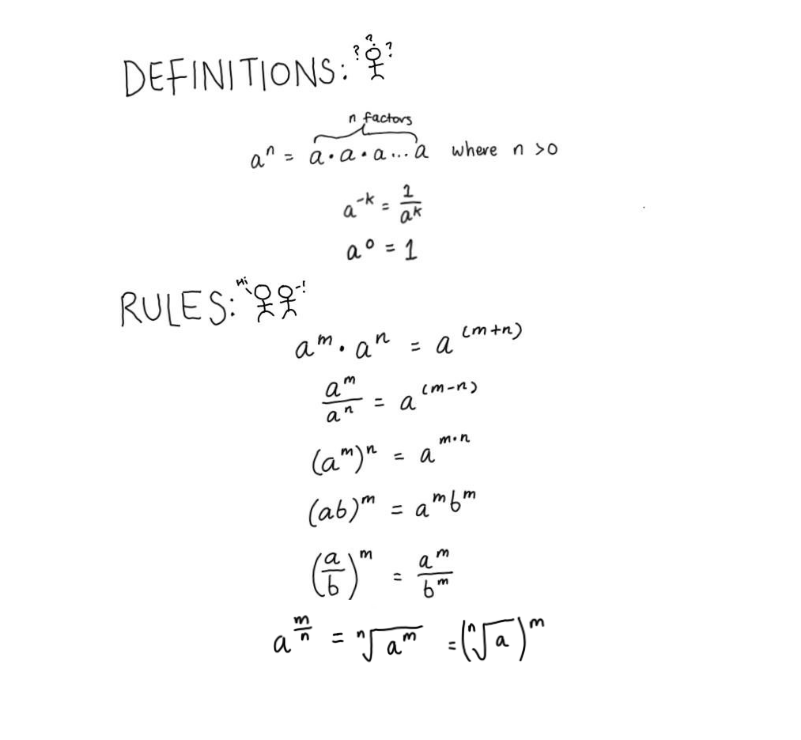 DEFINITIONS: ???
n factors
aⁿ = a · a · a ... a where n >0
a⁻ᵏ = 1/aᵏ
a⁰ = 1
RULES: Hi !
aᵐ · aⁿ = a⁽ᵐ⁺ⁿ⁾
aᵐ/aⁿ = a⁽ᵐ⁻ⁿ⁾
(aᵐ)ⁿ = a^m·n
(ab)ᵐ = aᵐbᵐ
(a/b)ᵐ = aᵐ/bᵐ
a^m/n = ⁿ√aᵐ = (ⁿ√a)ᵐ